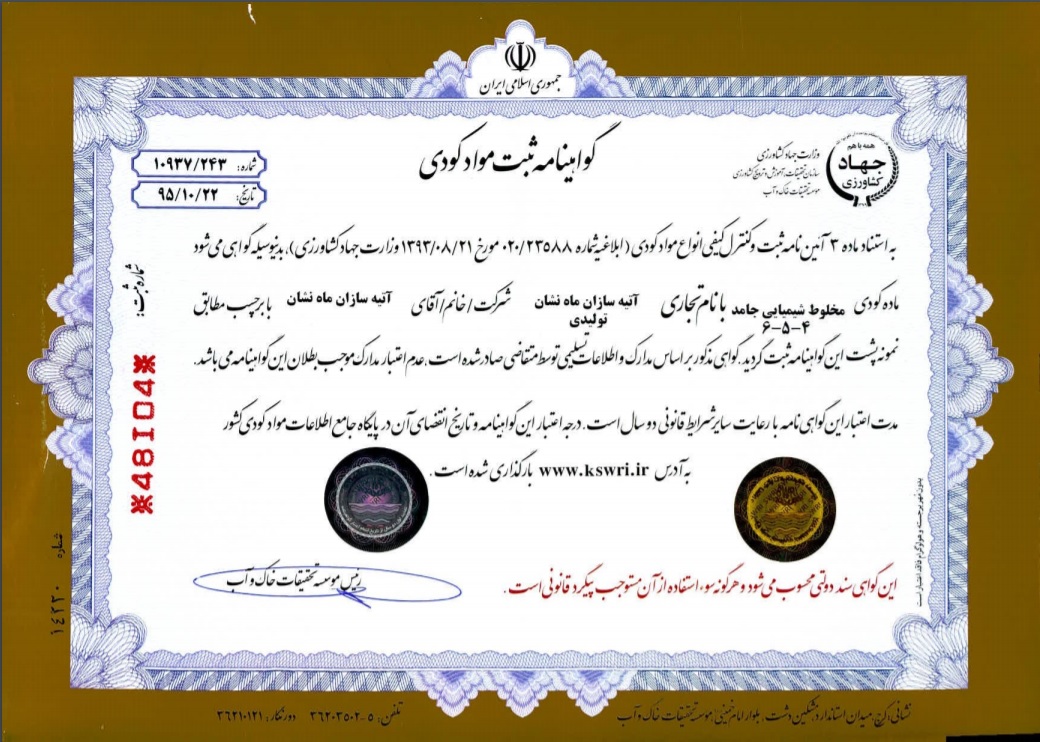 جمهوری اسلامی ایران
همه با هم
جهاد
کشاورزی
وزارت جهاد کشاورزی
سازمان تحقیقات، آموزش و ترویج کشاورزی
موسسه تحقیقات خاک و آب
گواهینامه ثبت مواد کودی
شماره: ۱۰۹۳۷/۲۴۳
تاریخ: ۹۵/۱۰/۲۲
به استناد ماده ۳ آئین نامه ثبت و کنترل کیفی انواع مواد کودی (ابلاغیه شماره ۰۲۰/۲۳۵۸۸ مورخ ۱۳۹۳/۰۸/۲۱ وزارت جهاد کشاورزی)، بدینوسیله گواهی می شود
ماده کودی مخلوط شیمیایی جامد ۶-۵-۴ با نام تجاری آتیه سازان ماه نشان تولیدی شرکت/خانم/آقای آتیه سازان ماه نشان با برچسب مطابق
نمونه پشت این گواهینامه ثبت گردید. گواهی مذکور بر اساس مدارک و اطلاعات تسلیمی توسط متقاضی صادر شده است، عدم اعتبار مدارک موجب بطلان این گواهینامه می باشد.
مدت اعتبار این گواهی نامه با رعایت سایر شرایط قانونی دو سال است. درجه اعتبار این گواهینامه و تاریخ انقضای آن در پایگاه جامع اطلاعات مواد کودی کشور
به آدرس www.kswri.ir بارگذاری شده است.
شماره ثبت:
※48104※
رئیس موسسه تحقیقات خاک و آب
این گواهی سند دولتی محسوب می شود و هرگونه سوء استفاده از آن مستوجب پیگرد قانونی است.
بدون مهر برجسته و هولوگرام فاقد اعتبار است
شماره ۱۴۲۳۰
نشانی: کرج، میدان استاندارد، مشکین دشت، بلوار امام خمینی، موسسه تحقیقات خاک و آب
تلفن: ۵-۳۶۲۰۳۵۰۲ دورنگار: ۳۶۲۱۰۱۲۱